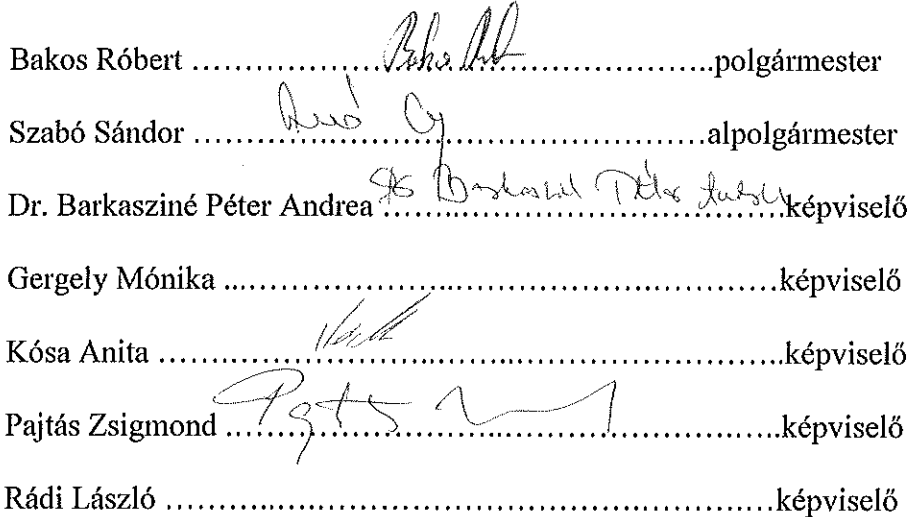 Bakos Róbert ……………………………………………..polgármester
Szabó Sándor ……………………………………………alpolgármester
Dr. Barkasziné Péter Andrea ……………………………………képviselő
Gergely Mónika ……………………………………………………képviselő
Kósa Anita ……………………………………………………..képviselő
Pajtás Zsigmond ……………………………………………..képviselő
Rádi László ……………………………………………………képviselő